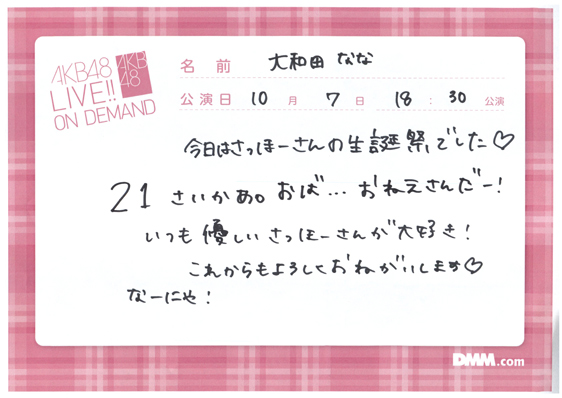 AKB48
LIVE!!
ON DEMAND
AKB
48
名 前 大和田 なな
公演日 10 月 7 日 18 : 30 公演
今日はさっほーさんの生誕祭でした♡
21 さいかぁ。おば… おねえさんだー!
いつも優しいさっほーさんが大好き!
これからもよろしくおねがいします♡
なーにゃ!
DMM.com